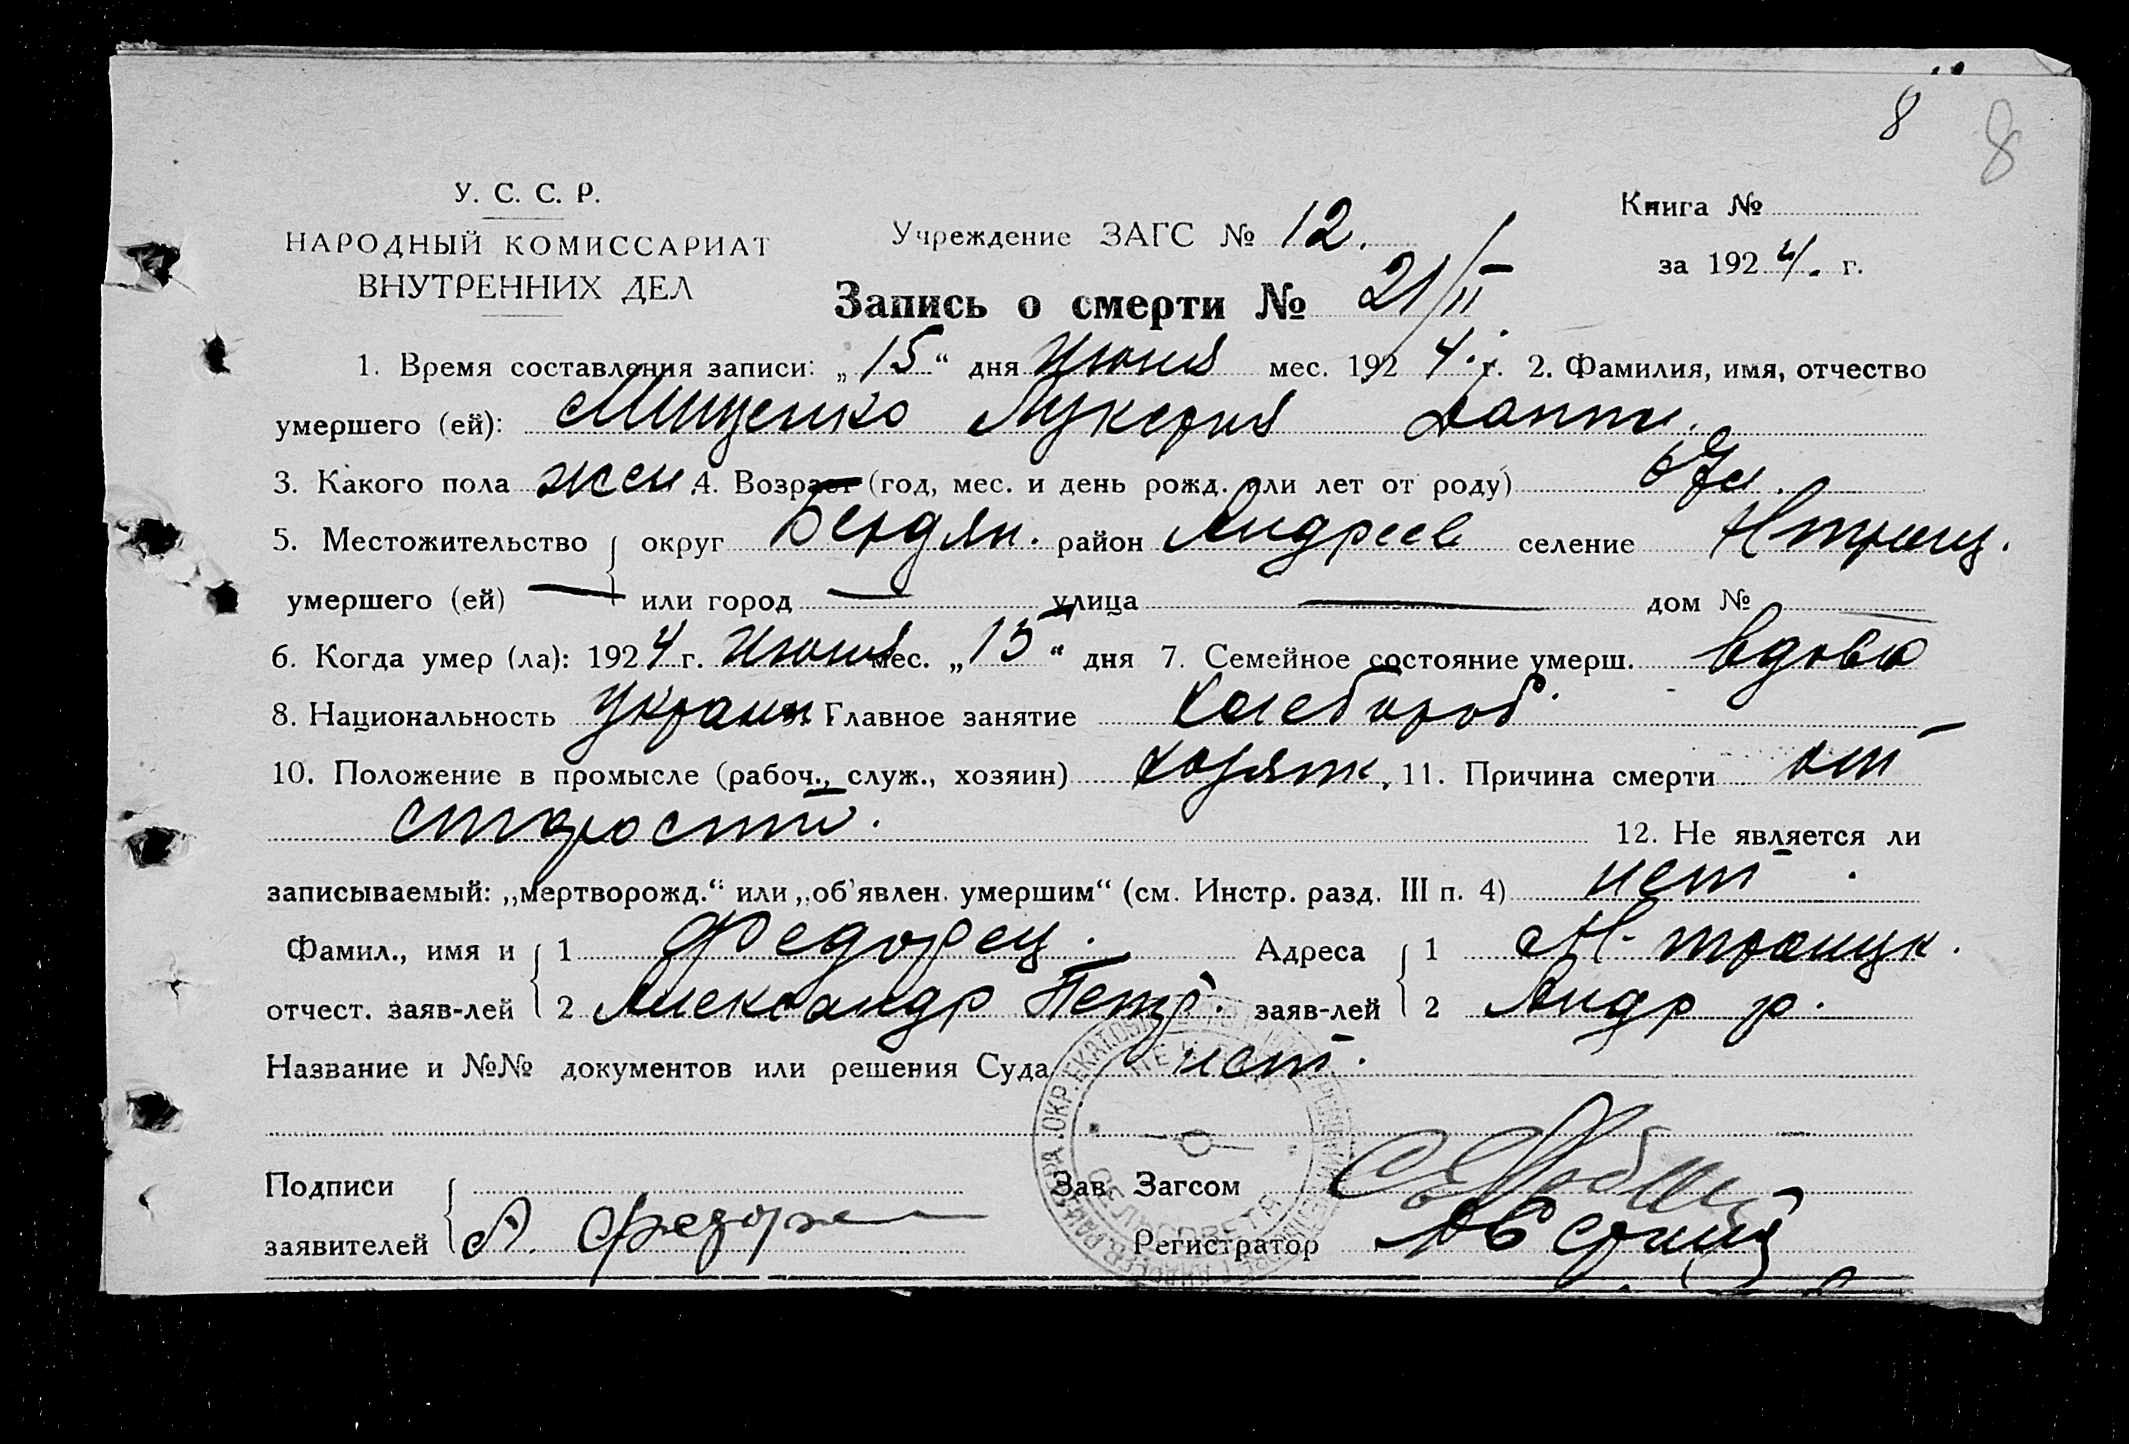 8 8
У. С. С. Р.
НАРОДНЫЙ КОМИССАРИАТ
ВНУТРЕННИХ ДЕЛ
Учреждение ЗАГС № 12.
Книга №
за 1924. г.
Запись о смерти № 21/II
1. Время составления записи: „15“ дня Июня мес. 1924. г. 2. Фамилия, имя, отчество
умершего (ей): Мищенко Лукерия
3. Какого пола жен. 4. Возраст (год, мес. и день рожд. или лет от роду)
5. Местожительство округ Бердян. район Андреев селение Н троиц.
умершего (ей) — или город — улица — дом № —
6. Когда умер (ла): 1924 г. Июня мес. „15“ дня 7. Семейное состояние умерш. вдова
8. Национальность украин. Главное занятие хлебороб.
10. Положение в промысле (рабоч., служ., хозяин) хозяйк. 11. Причина смерти от
старости. 12. Не является ли
записываемый: „мертворожд.“ или „об'явлен. умершим“ (см. Инстр. разд. III п. 4) нет.
Фамил., имя и 1 Федорец. Адреса 1 Н-троицк.
отчест. заяв-лей 2 Александр Петр. заяв-лей 2 Андр р.
Название и №№ документов или решения Суда нет.
Подписи Зав. Загсом
заявителей А. Федорец Регистратор